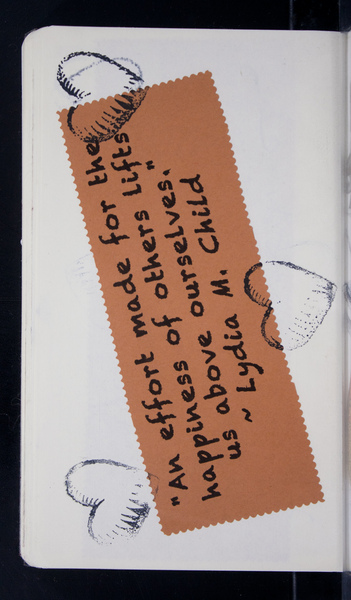 "An effort made for the
happiness of others lifts"
us above ourselves.
~ Lydia M. Child